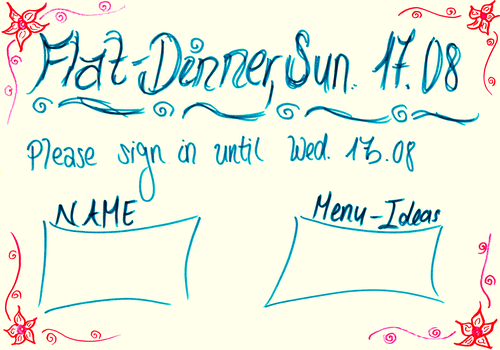 Flat-Dinner, Sun. 17.08
Please sign in until Wed. 13.08
NAME Menu-Ideas